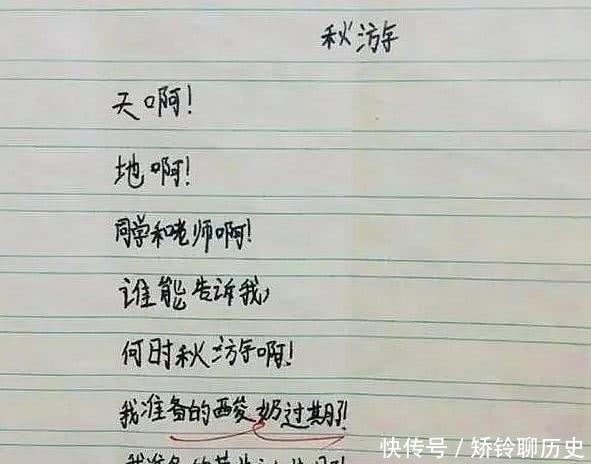 秋游
天啊!
地啊!
同学和老师啊!
谁能告诉我,
何时秋游啊!
我准备的酸奶过期了!
快传号 / 矫铃聊历史